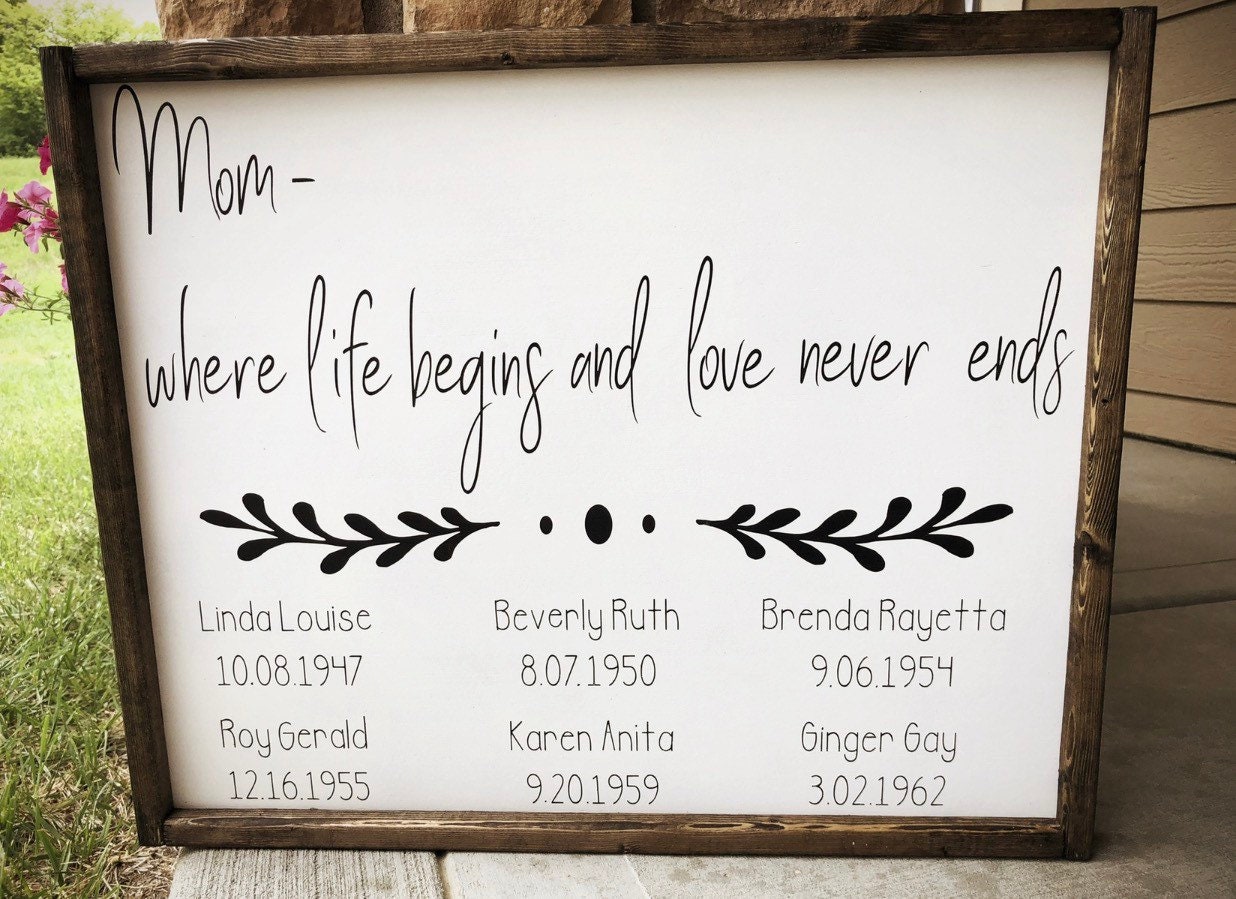 Mom -
where life begins and love never ends
Linda Louise Beverly Ruth Brenda Rayetta
10.08.1947 8.07.1950 9.06.1954
Roy Gerald Karen Anita Ginger Gay
12.16.1955 9.20.1959 3.02.1962